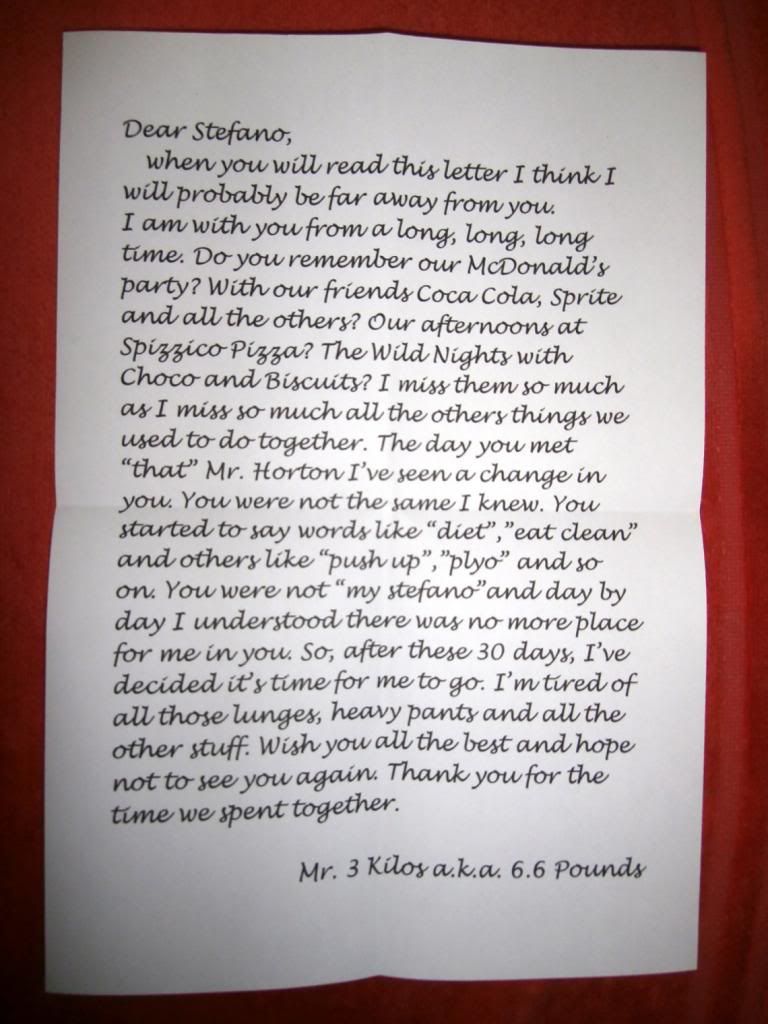 Dear Stefano,
when you will read this letter I think I
will probably be far away from you.
I am with you from a long, long, long
time. Do you remember our McDonald's
party? With our friends Coca Cola, Sprite
and all the others? Our afternoons at
Spizzico Pizza? The Wild Nights with
Choco and Biscuits? I miss them so much
as I miss so much all the others things we
used to do together. The day you met
“that” Mr. Horton I've seen a change in
you. You were not the same I knew. You
started to say words like “diet”,”eat clean”
and others like “push up”,”plyo” and so
on. You were not “my stefano”and day by
day I understood there was no more place
for me in you. So, after these 30 days, I've
decided it's time for me to go. I'm tired of
all those lunges, heavy pants and all the
other stuff. Wish you all the best and hope
not to see you again. Thank you for the
time we spent together.
Mr. 3 Kilos a.k.a. 6.6 Pounds